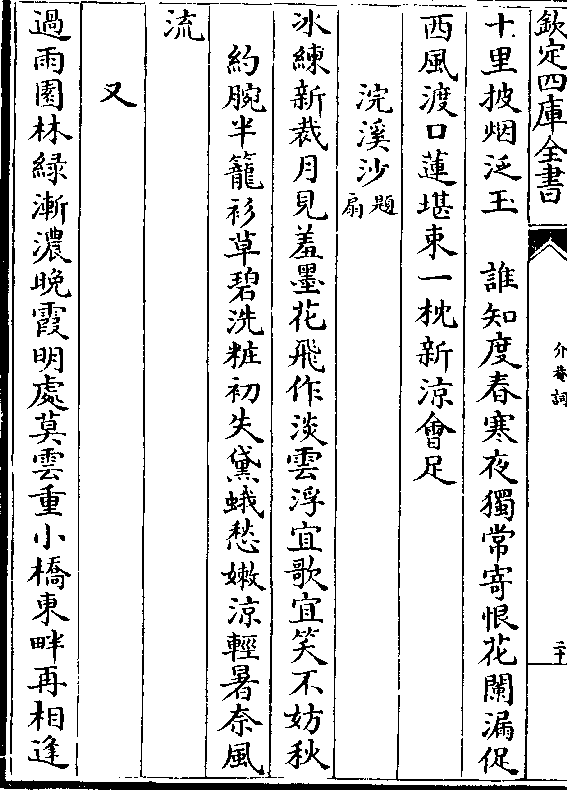 欽定四庫全書
介菴詞
二十
十里披烟泛玉　誰知度春寒夜獨常寄恨花闌漏促
西風渡口蓮堪束一枕新涼會足
浣溪沙題扇
冰練新裁月見羞墨花飛作淡雲浮宜歌宜笑不妨秋
約腕半籠衫草碧洗粧初失黛蛾愁嫩涼輕暑奈風
流
又
過雨園林綠漸濃晚霞明處莫雲重小橋東畔再相逢